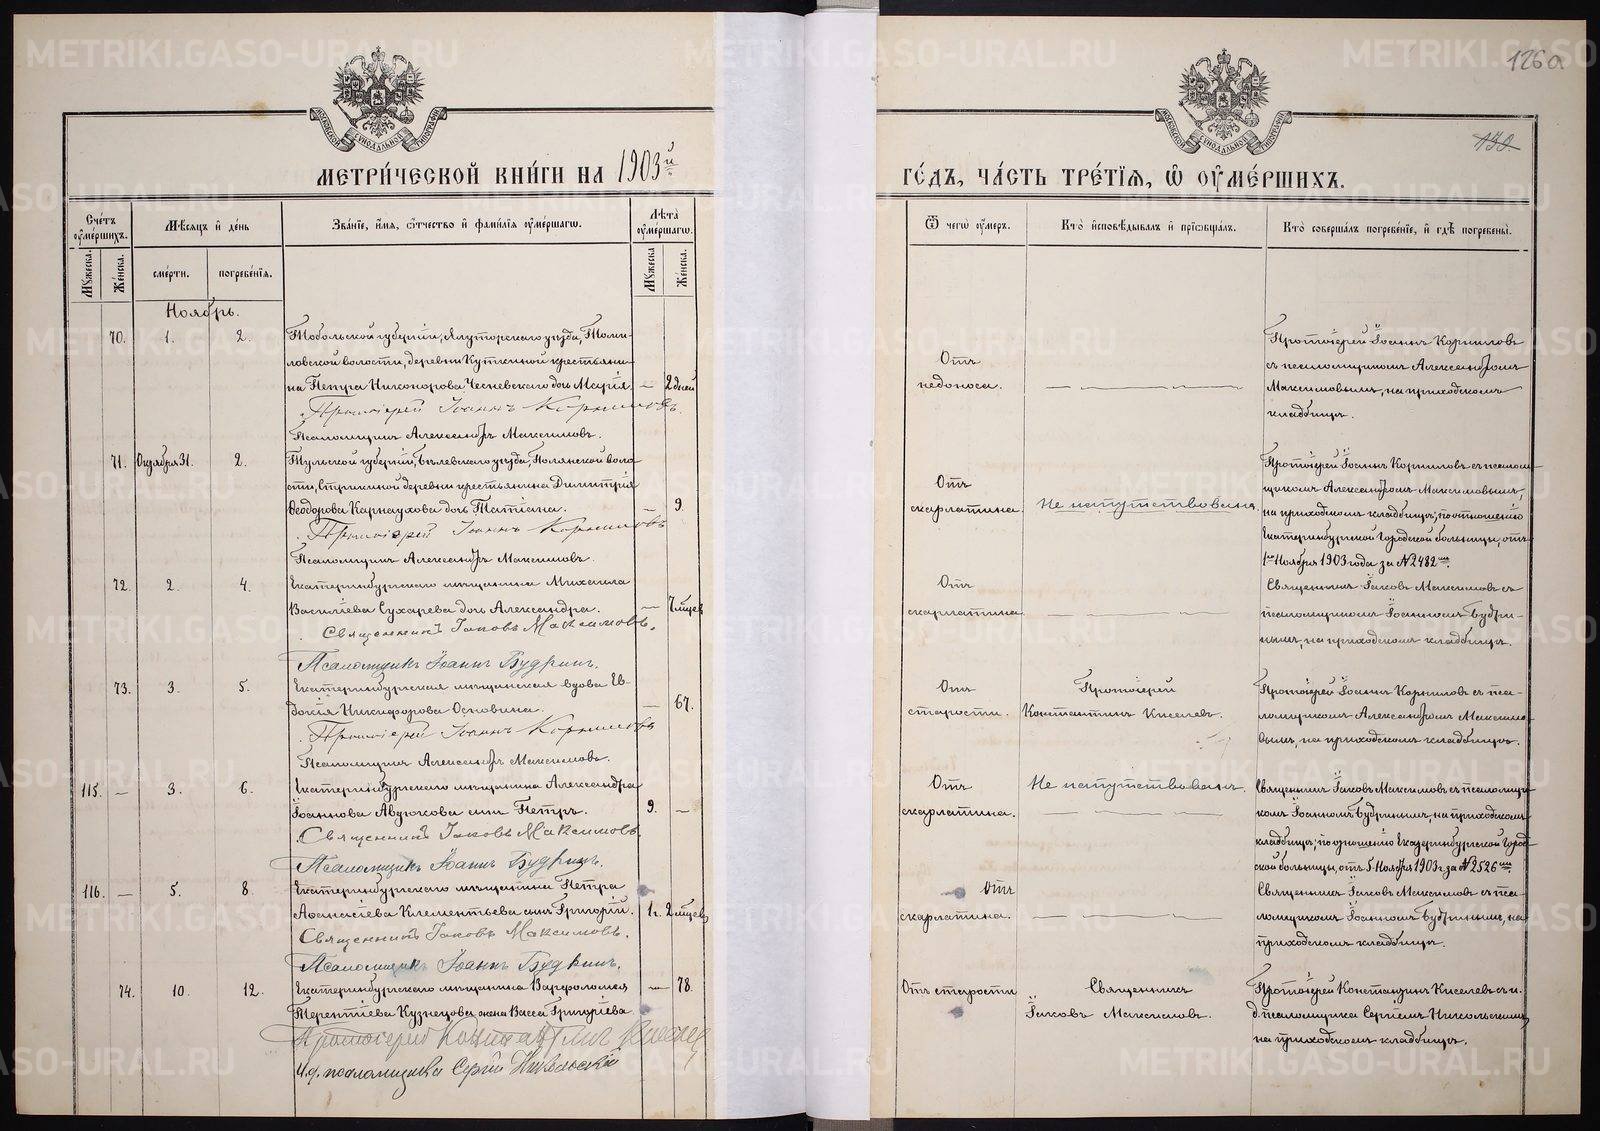 126о.
130.
МЕТРИ́ЧЕСКОЙ КНИ́ГИ НА 1903й
ГО́ДЪ, ЧА́СТЬ ТРЕ́ТЇѦ, Ѽ ОУМЕ́РШИХЪ.
Сче́тъ оуме́ршихъ.
Мѣ́сѧцъ и҆ де́нь
Зва́нїе, и҆́мѧ, ѻ҆́тчество и҆ фами́лїѧ оуме́ршагѡ.
Лѣ́та оуме́ршагѡ.
Ѿ чегѡ̀ оу́меръ.
Кто̀ и҆сповѣ́дывалъ и҆ прїѡбща́лъ.
Кто̀ соверша́лъ погребе́нїе, и҆ гдѣ̀ погребены̀.
Му́жеска.
Же́нска.
сме́рти.
погребе́нїѧ.
Му́жеска
Же́нска.
Ноябрь.
70.
1.
2.
Тобольской губерніи, Ялуторскаго уѣзда, Томи-
ловской волости, деревни Куткиной крестьяни-
на Петра Никонорова Чесневскаго дочь Марія.
— 2 дней
Протоіерей Іоаннъ Корниловъ.
Псаломщикъ Александръ Максимовъ.
Отъ
недоноса.
Протоіерей Іоаннъ Корниловъ
съ псаломщикомъ Александромъ
Максимовымъ, на приходскомъ
кладбищѣ.
71.
Октября 31.
2.
Тульской губерніи, Бѣлевскаго уѣзда, Полянской воло-
сти, Стрикиной деревни крестьянина Димитрія
Ѳеодорова Карнаухова дочь Татіана.
— 9.
Протоіерей Іоаннъ Корниловъ
Псаломщикъ Александръ Максимовъ.
Отъ
скарлатина.
Не напутствована.
Протоіерей Іоаннъ Корниловъ съ псалом-
щикомъ Александромъ Максимовымъ,
на приходскомъ кладбищѣ; по отношенію
Екатеринбургской Городской больницы, отъ
1го Ноября 1903 года за № 2482мъ.
72.
2.
4.
Екатеринбургскаго мѣщанина Михаила
Василіева Сухарева дочь Александра.
— 7 мѣцев
Священникъ Іаковъ Максимовъ.
Псаломщикъ Іоаннъ Будринъ.
Отъ
скарлатина.
Священникъ Іаковъ Максимовъ съ
псаломщикомъ Іоанномъ Будри-
нымъ, на приходскомъ кладбищѣ.
73.
3.
5.
Екатеринбургская мѣщанская вдова Ев-
докія Никифорова Основина.
— 67.
Протоіерей Іоаннъ Корниловъ
Псаломщикъ Александръ Максимовъ.
Отъ
старости.
Протоіерей
Константинъ Киселевъ.
Протоіерей Іоаннъ Корниловъ съ пса-
ломщикомъ Александромъ Максимо-
вымъ, на приходскомъ кладбищѣ.
115.
—
3.
6.
Екатеринбургскаго мѣщанина Александра
Іоаннова Авдюкова сынъ Петръ.
9. —
Священникъ Іаковъ Максимовъ.
Псаломщикъ Іоаннъ Будринъ.
Отъ
скарлатина.
Не напутствованъ.
Священникъ Іаковъ Максимовъ съ псаломщи-
комъ Іоанномъ Будринымъ, на приходскомъ
кладбищѣ; по отношенію Екатеринбургской Город-
ской больницы, отъ 5 Ноября 1903 г. за № 2526мъ
116.
—
5.
8.
Екатеринбургскаго мѣщанина Петра
Аѳанасіева Клементьева сынъ Григорій.
1 г. 2 мѣцев
Священникъ Іаковъ Максимовъ.
Псаломщикъ Іоаннъ Будринъ.
Отъ
скарлатина.
Священникъ Іаковъ Максимовъ съ пса-
ломщикомъ Іоанномъ Будринымъ, на
приходскомъ кладбищѣ.
74.
10.
12.
Екатеринбургскаго мѣщанина Варѳоломея
Терентіева Кузнецова жена Васса Григоріева
— 78.
Протоіерей Константинъ Киселев
И.д. псаломщика Сергій Никольскій
Отъ старости
Священникъ
Іаковъ Максимовъ.
Протоіерей Константинъ Киселевъ съ и.
д. псаломщика Сергіемъ Никольскимъ,
на приходскомъ кладбищѣ.